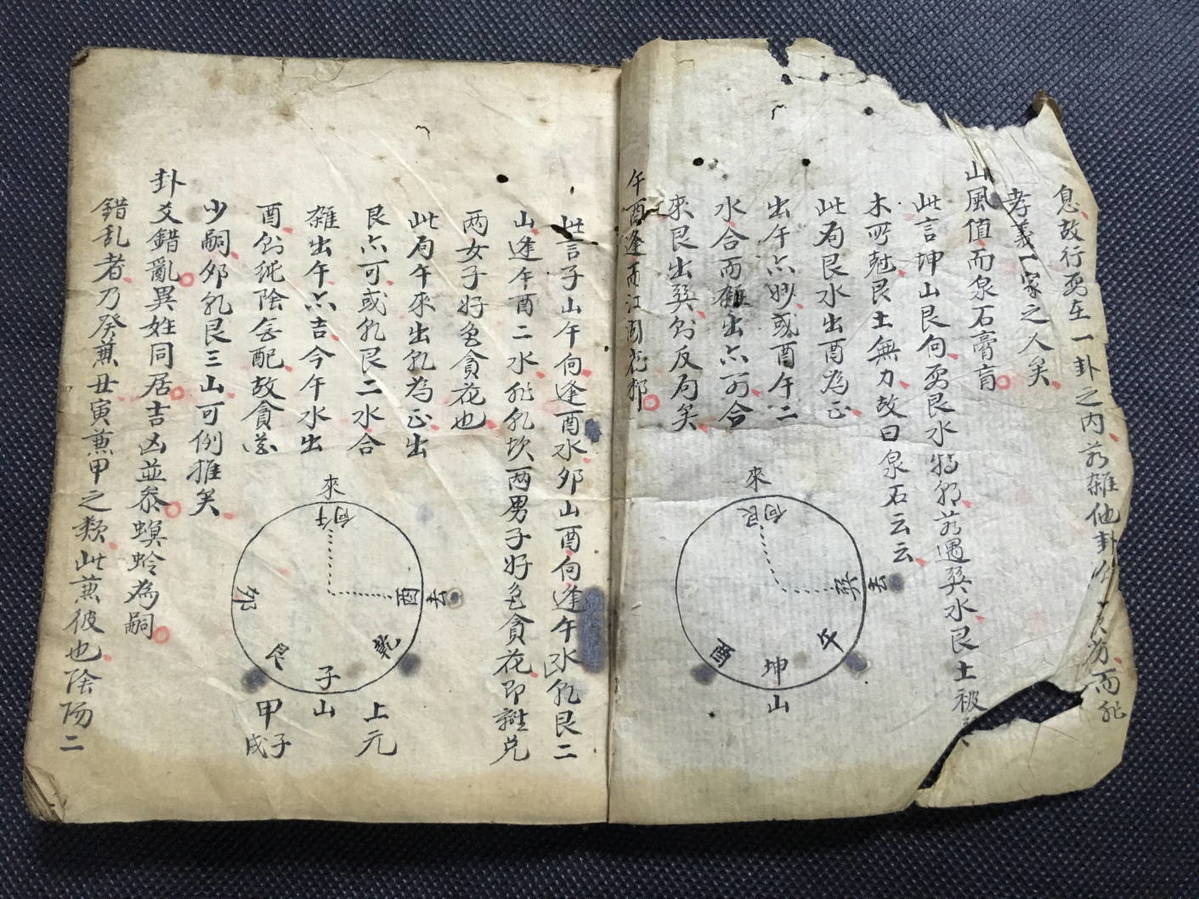 息故行要在一卦之内若雜他卦
孝義一家之人矣
山風值而泉石膏肓
此言坤山艮向要艮水特朝若遇巽水艮土被
木所尅艮土無力故曰泉石云云
此局艮水出酉為正
出午亦妙或酉午二
水合而雜出亦可合
來艮出巽則反局矣
來
向艮
巽 去
午
坤
山
酉
午酉逢而江湖花酒
此言子山午向逢酉水卯山酉向逢午水乾艮二
山逢午酉二水非乾坎两男子好色貪花即離兑
两女子好色貪花也
此局午來出乾為正出
艮亦可或乾艮二水合
雜出午亦吉今午水出
酉則純陰無配故貪花
少嗣卯乾艮三山可例推矣
來
向午
酉 去
乾
子
山
艮
卯
上元
甲子
戌
卦爻錯亂異姓同居吉凶並叅螟蛉為嗣
錯乱者乃癸兼丑寅兼甲之類此兼彼也陰陽二